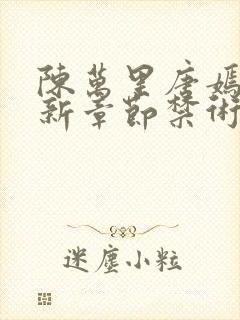 陳萬里唐嫣
新章節禁術
迷塵小粒